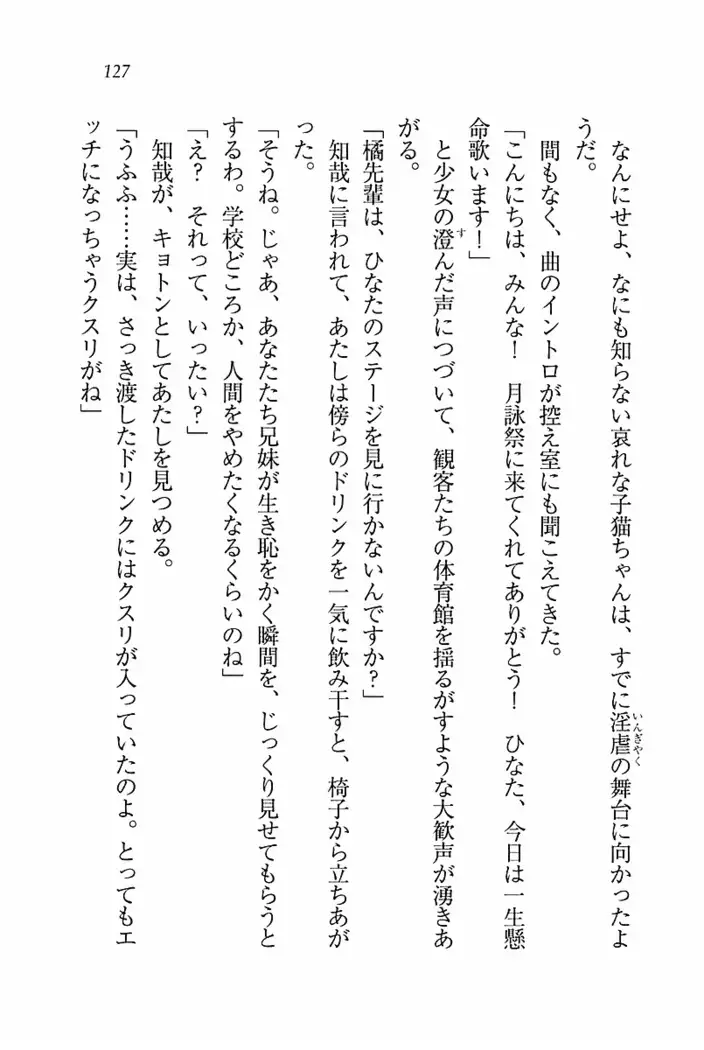 127
なんにせよ、なにも知らない哀れな子猫ちゃんは、すでに淫虐の舞台に向かったよ
いんぎゃく
うだ。
間もなく、曲のイントロが控え室にも聞こえてきた。
「こんにちは、みんな！　月詠祭に来てくれてありがとう！　ひなた、今日は一生懸
命歌います！」
と少女の澄んだ声につづいて、観客たちの体育館を揺るがすような大歓声が湧きあ
す
がる。
「橘先輩は、ひなたのステージを見に行かないんですか？」
知哉に言われて、あたしは傍らのドリンクを一気に飲み干すと、椅子から立ちあが
った。
「そうね。じゃあ、あなたたち兄妹が生き恥をかく瞬間を、じっくり見せてもらうと
するわ。学校どころか、人間をやめたくなるくらいのね」
「え？　それって、いったい？」
知哉が、キョトンとしてあたしを見つめる。
「うふふ……実は、さっき渡したドリンクにはクスリが入っていたのよ。とってもエ
ッチになっちゃうクスリがね」